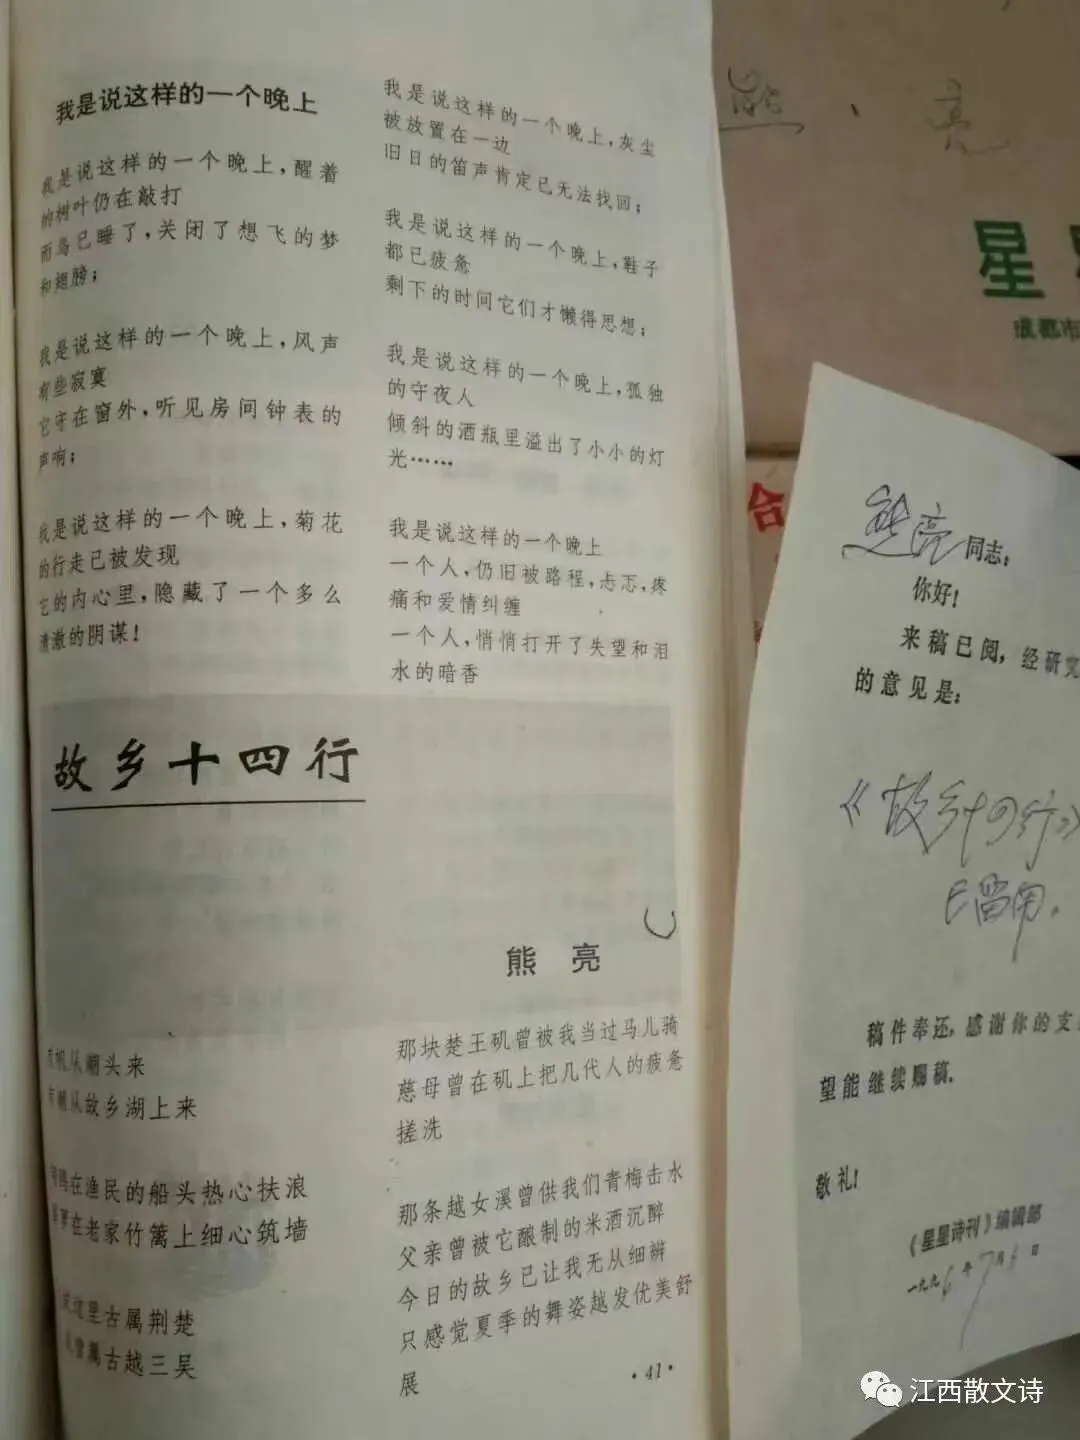 我是说这样的一个晚上
我是说这样的一个晚上，醒着
的树叶仍在敲打
而鸟已睡了，关闭了想飞的梦
和翅膀；
我是说这样的一个晚上，风声
有些寂寞
它守在窗外，听见房间钟表的
声响；
我是说这样的一个晚上，菊花
的行走已被发现
它的内心里，隐藏了一个多么
清澈的阴谋！
我是说这样的一个晚上，灰尘
被放置在一边
旧日的笛声肯定已无法找回；
我是说这样的一个晚上，鞋子
都已疲惫
剩下的时间它们才懒得思想；
我是说这样的一个晚上，孤独
的守夜人
倾斜的酒瓶里溢出了小小的灯
光……
我是说这样的一个晚上
一个人，仍旧被路程，忐忑，疼
痛和爱情纠缠
一个人，悄悄打开了失望和泪
水的暗香
故乡十四行
熊 亮
帆从潮头来
从故乡湖上来
在渔民的船头热心扶浪
在老家竹篱上细心筑墙
这里古属荆楚
曾属古越三吴
那块楚王矶曾被我当过马儿骑
慈母曾在矶上把几代人的疲惫
搓洗
那条越女溪曾供我们青梅击水
父亲曾被它酿制的米酒沉醉
今日的故乡已让我无从细辨
只感觉夏季的舞姿越发优美舒
展
·41·
熊、亮
星
成都市
合
熊亮同志：
你好！
来稿已阅，经研究
的意见是：
《故乡十四行》
已留用。
稿件奉还，感谢你的支
望能继续赐稿。
敬礼！
《星星诗刊》编辑部
一九九6年7月 日
江西散文诗